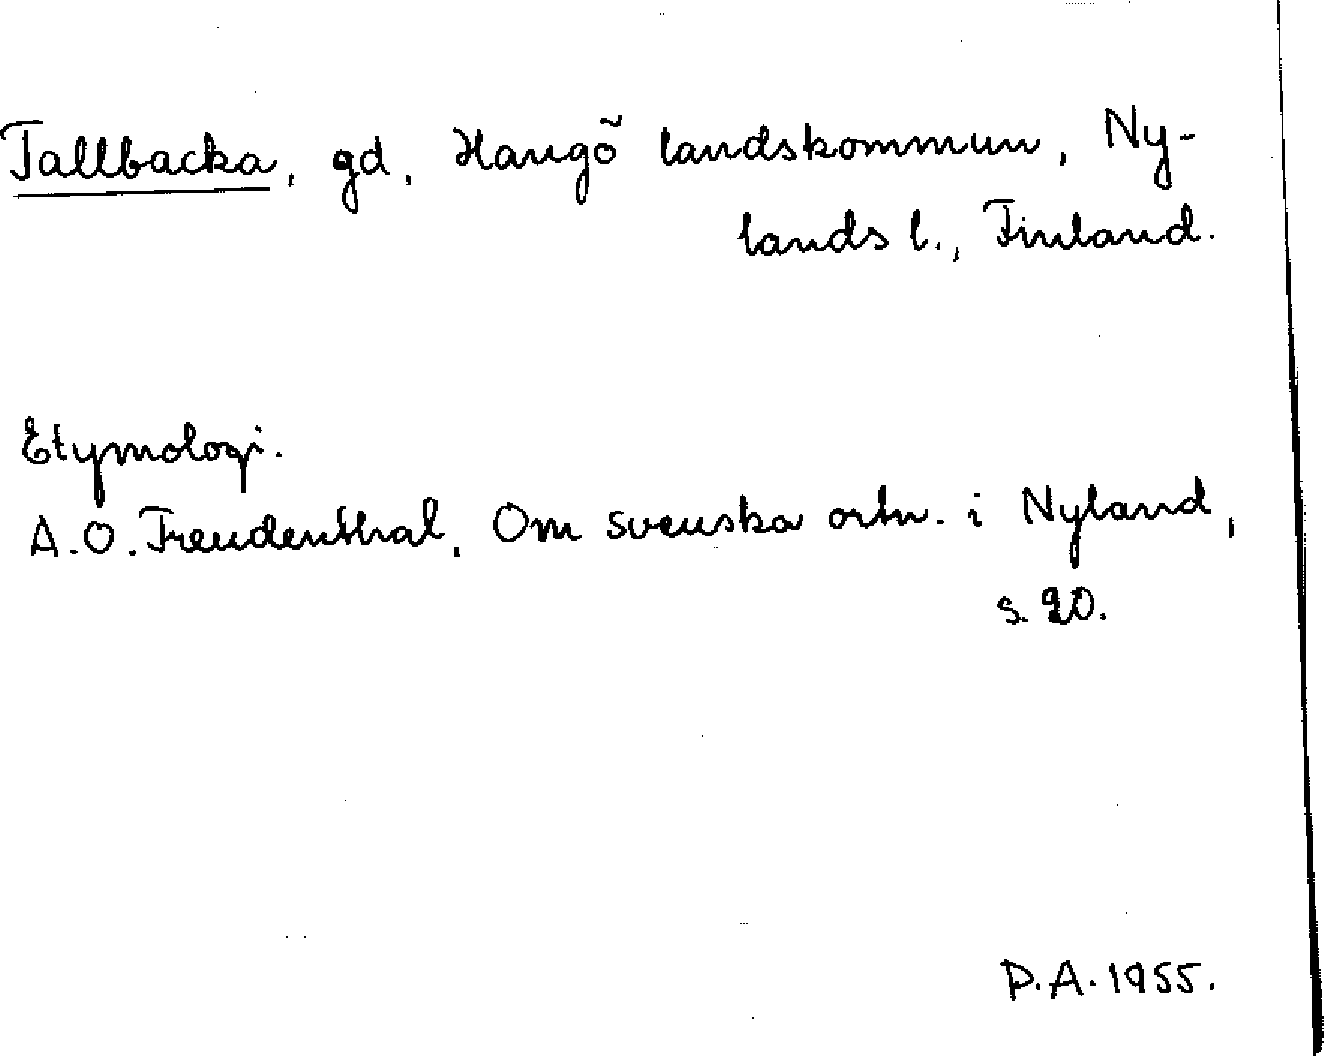 Tallbacka, gd, Hangö landskommun, Ny-
lands l., Finland.
Etymologi.
A.O. Freudenthal, Om svenska ortn. i Nyland,
s. 20.
P.A. 1955.